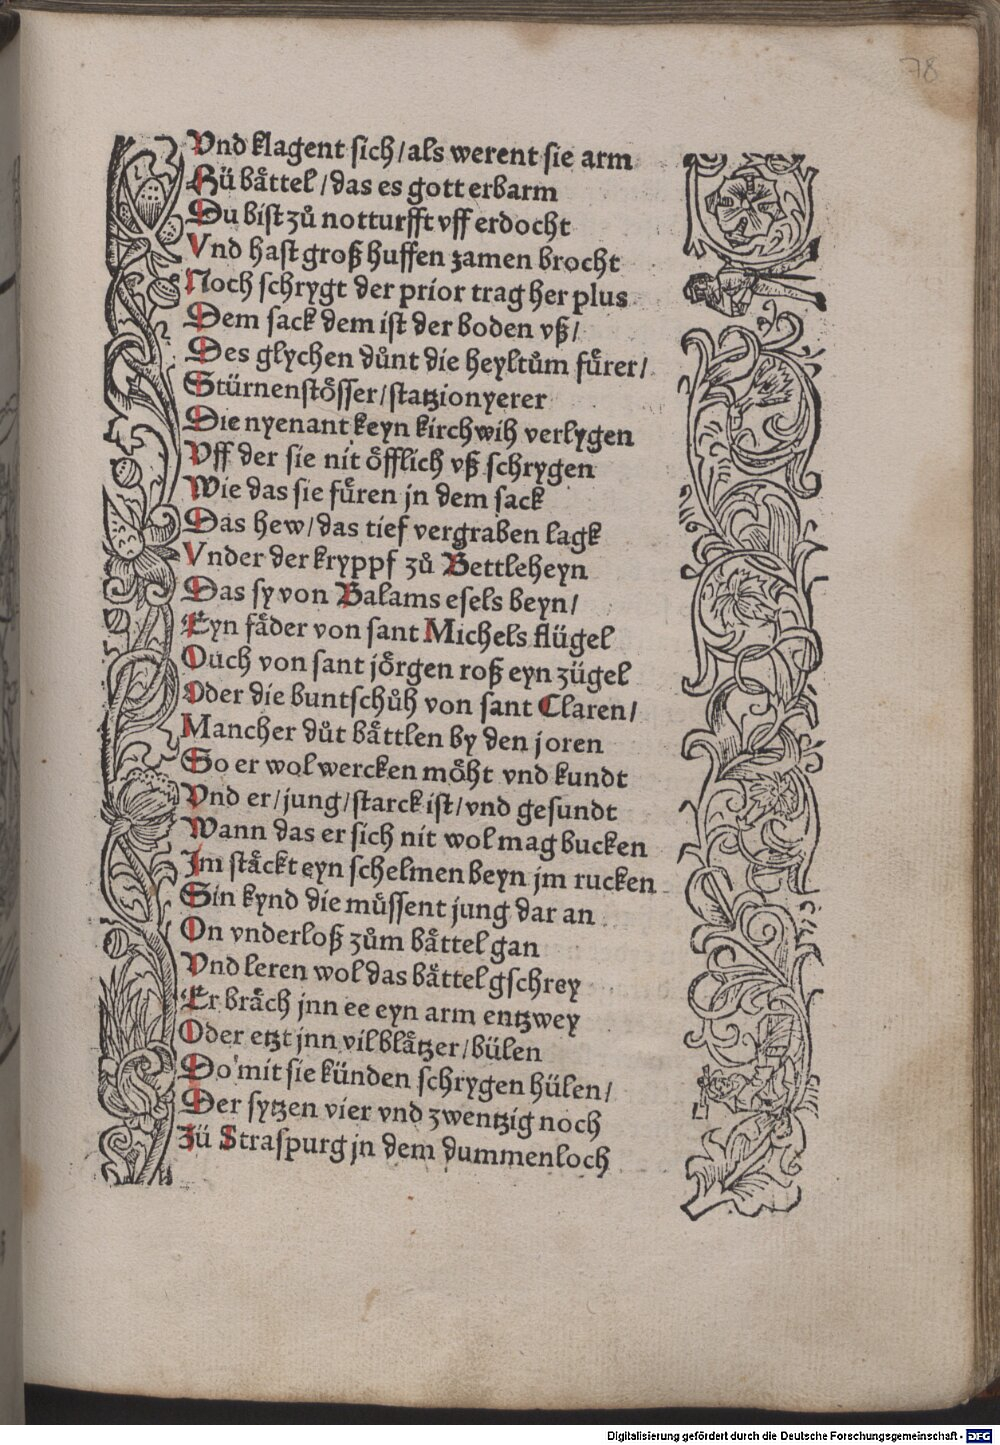 78
Vnd klagent sich/als werent sie arm
Hü båttel/das es gott erbarm
Du bist zů notturfft vff erdocht
Vnd hast groß huffen zamen brocht
Noch schrygt der prior trag her plus
Dem sack dem ist der boden vß/
Des glychen důnt die heyltům fůrer/
Stürnenstôsser/statzionyerer
Die nyenant keyn kirchwih verlygen
Vff der sie nit ôfflich vß schrygen
Wie das sie fůren jn dem sack
Das hew/das tief vergraben lagk
Vnder der kryppf zů Bettleheyn
Das sy von Balams esels beyn/
Eyn fåder von sant Michels flügel
Ouch von sant jôrgen roß eyn zügel
Oder die buntschůh von sant Claren/
Mancher důt båttlen by den joren
So er wol wercken môht vnd kundt
Vnd er/jung/starck ist/vnd gesundt
Wann das er sich nit wol mag bucken
Im ståckt eyn schelmen beyn jm rucken
Sin kynd die můssent jung dar an
On vnderloß zům båttel gan
Vnd leren wol das båttel gschrey
Er bråch jnn ee eyn arm entzwey
Oder etzt jnn vil blåtzer/bülen
Do mit sie künden schrygen hülen/
Der sytzen vier vnd zwentzig noch
Zü Straspurg jn dem dummenloch
Digitalisierung gefördert durch die Deutsche Forschungsgemeinschaft - DFG